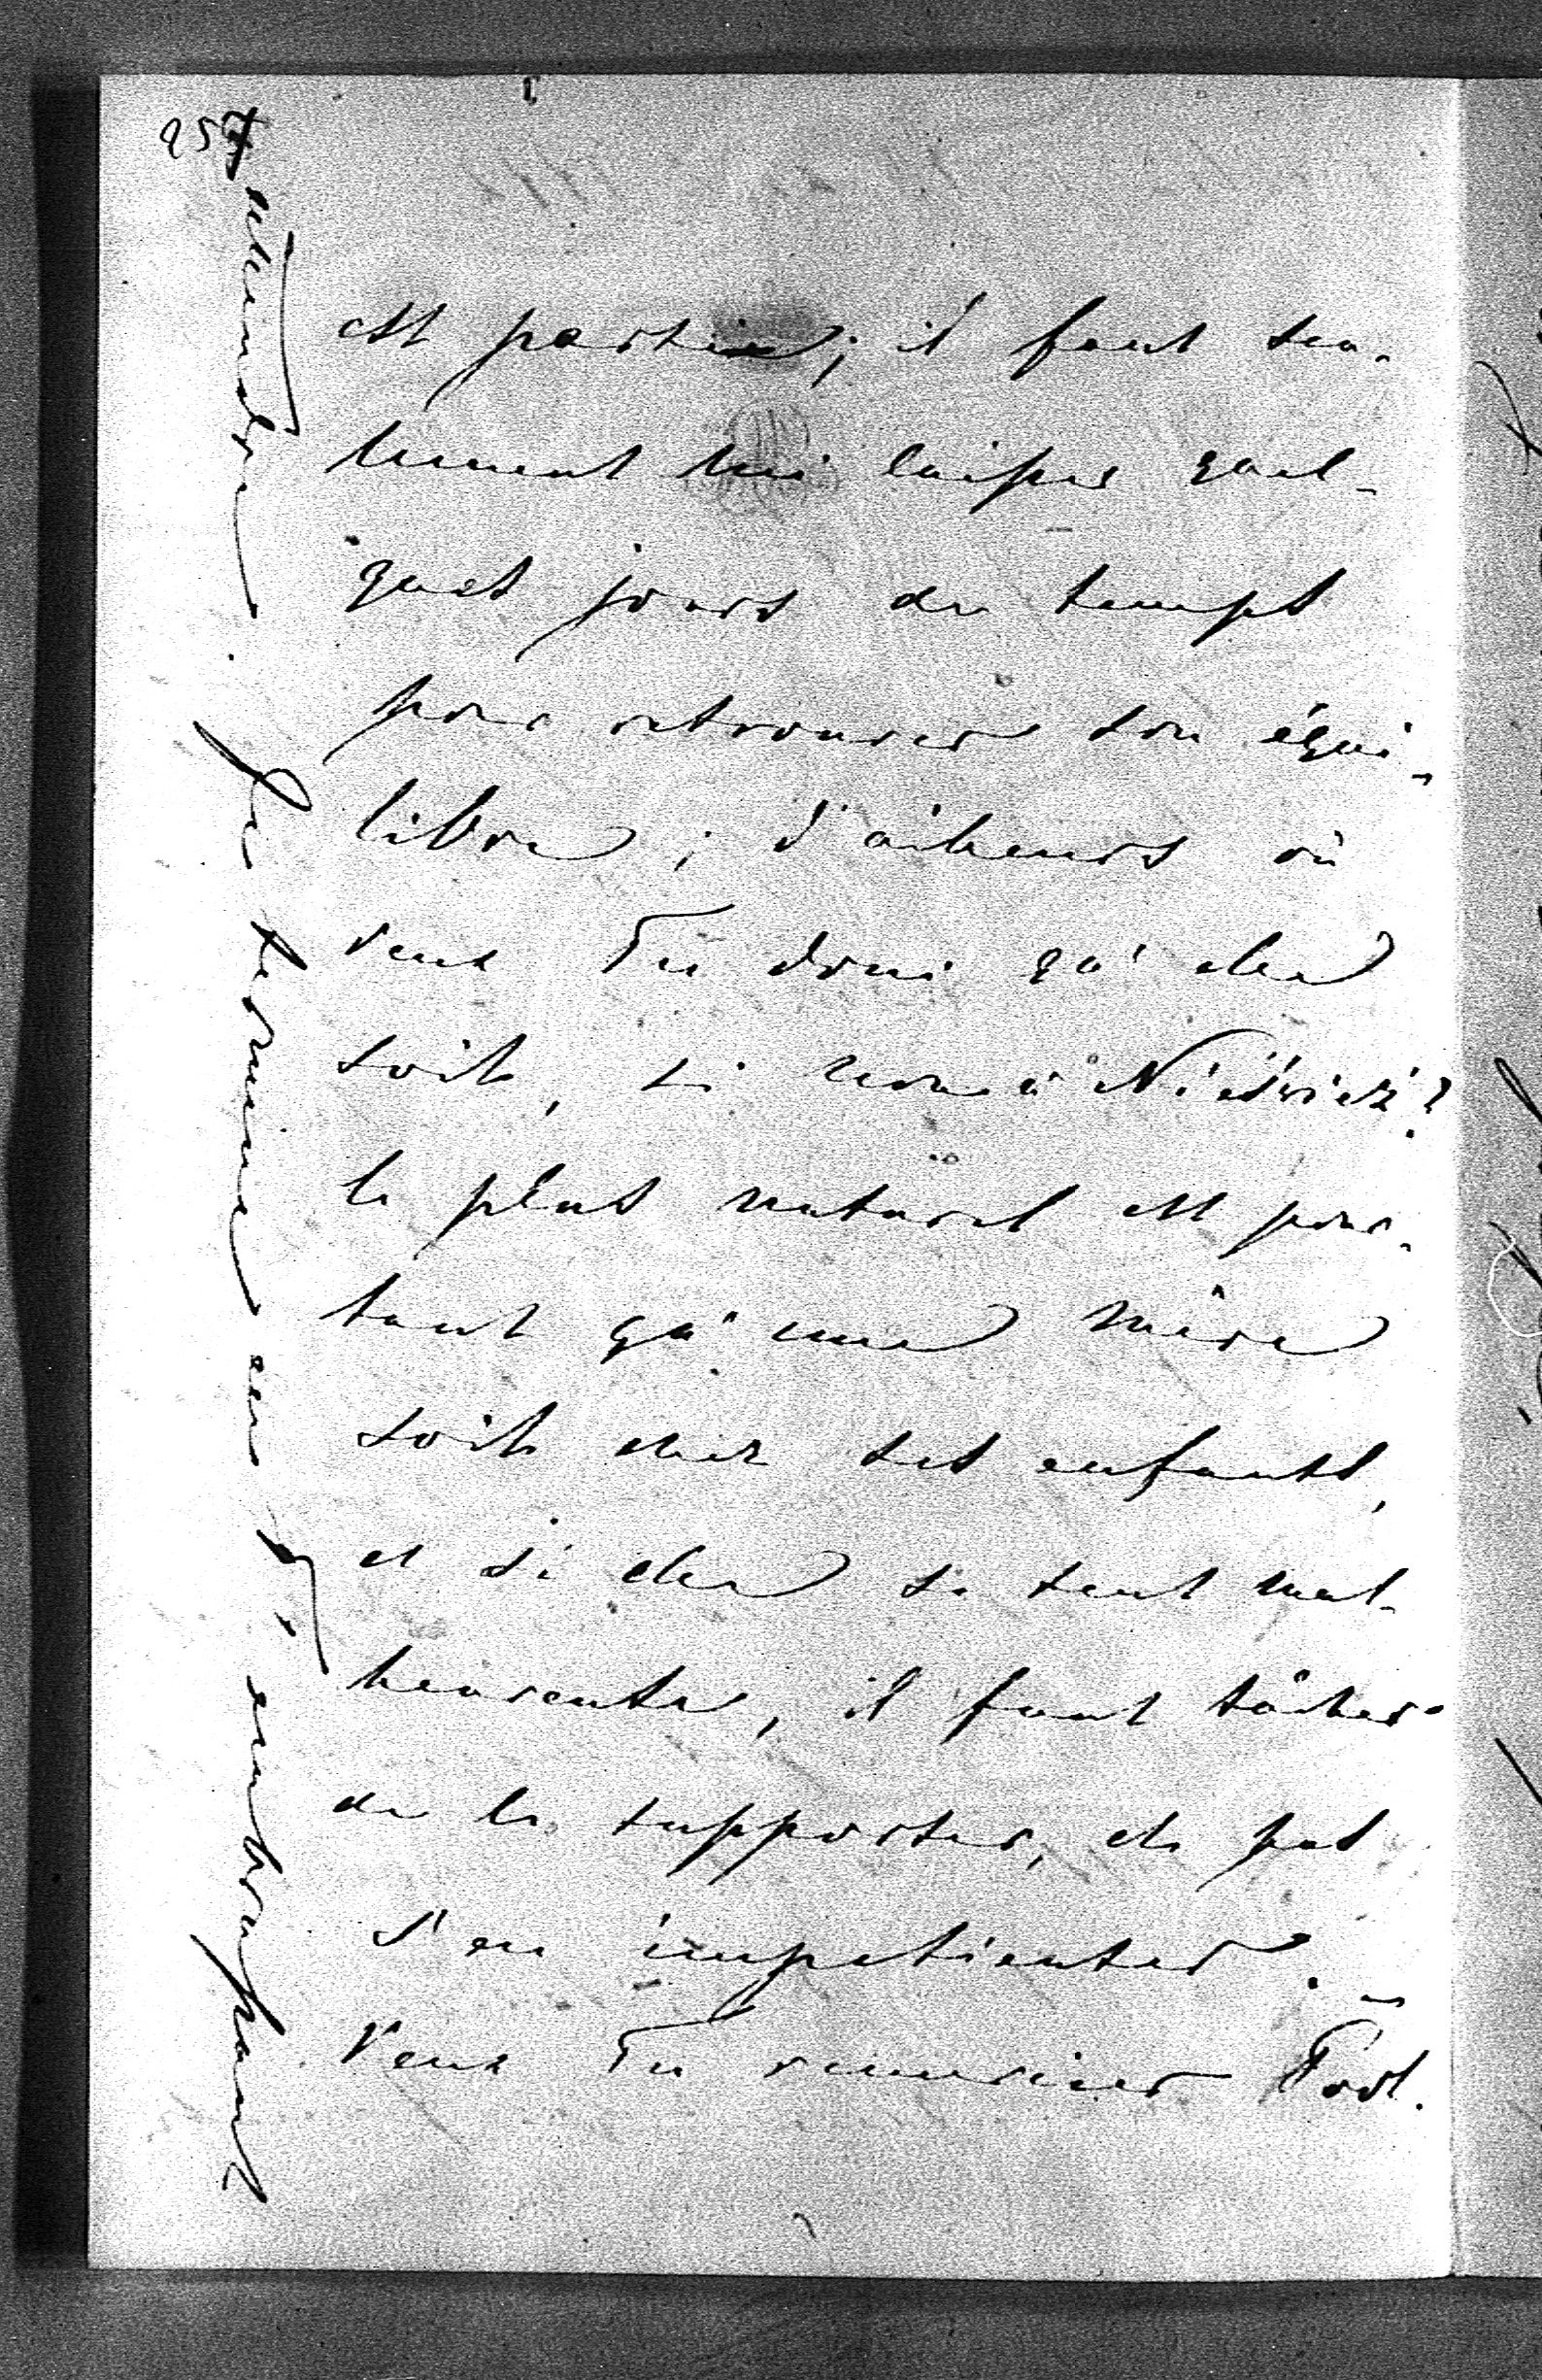 257
est partie; il faut seu-
lement lui laisser quel-
ques jours de temps
pour retrouver son équi-
libre; d'ailleurs où
veux Tu donc qu'elle
soit, si non à Nieśwież?
le plus naturel est pour-
tant qu'une mère
soit chez ses enfants,
et si elle se sent mal-
heureuse, il faut tâcher
de le supporter, et pas
s'en impatienter.
Veux Tu remercier
Je termine en T'embrassant